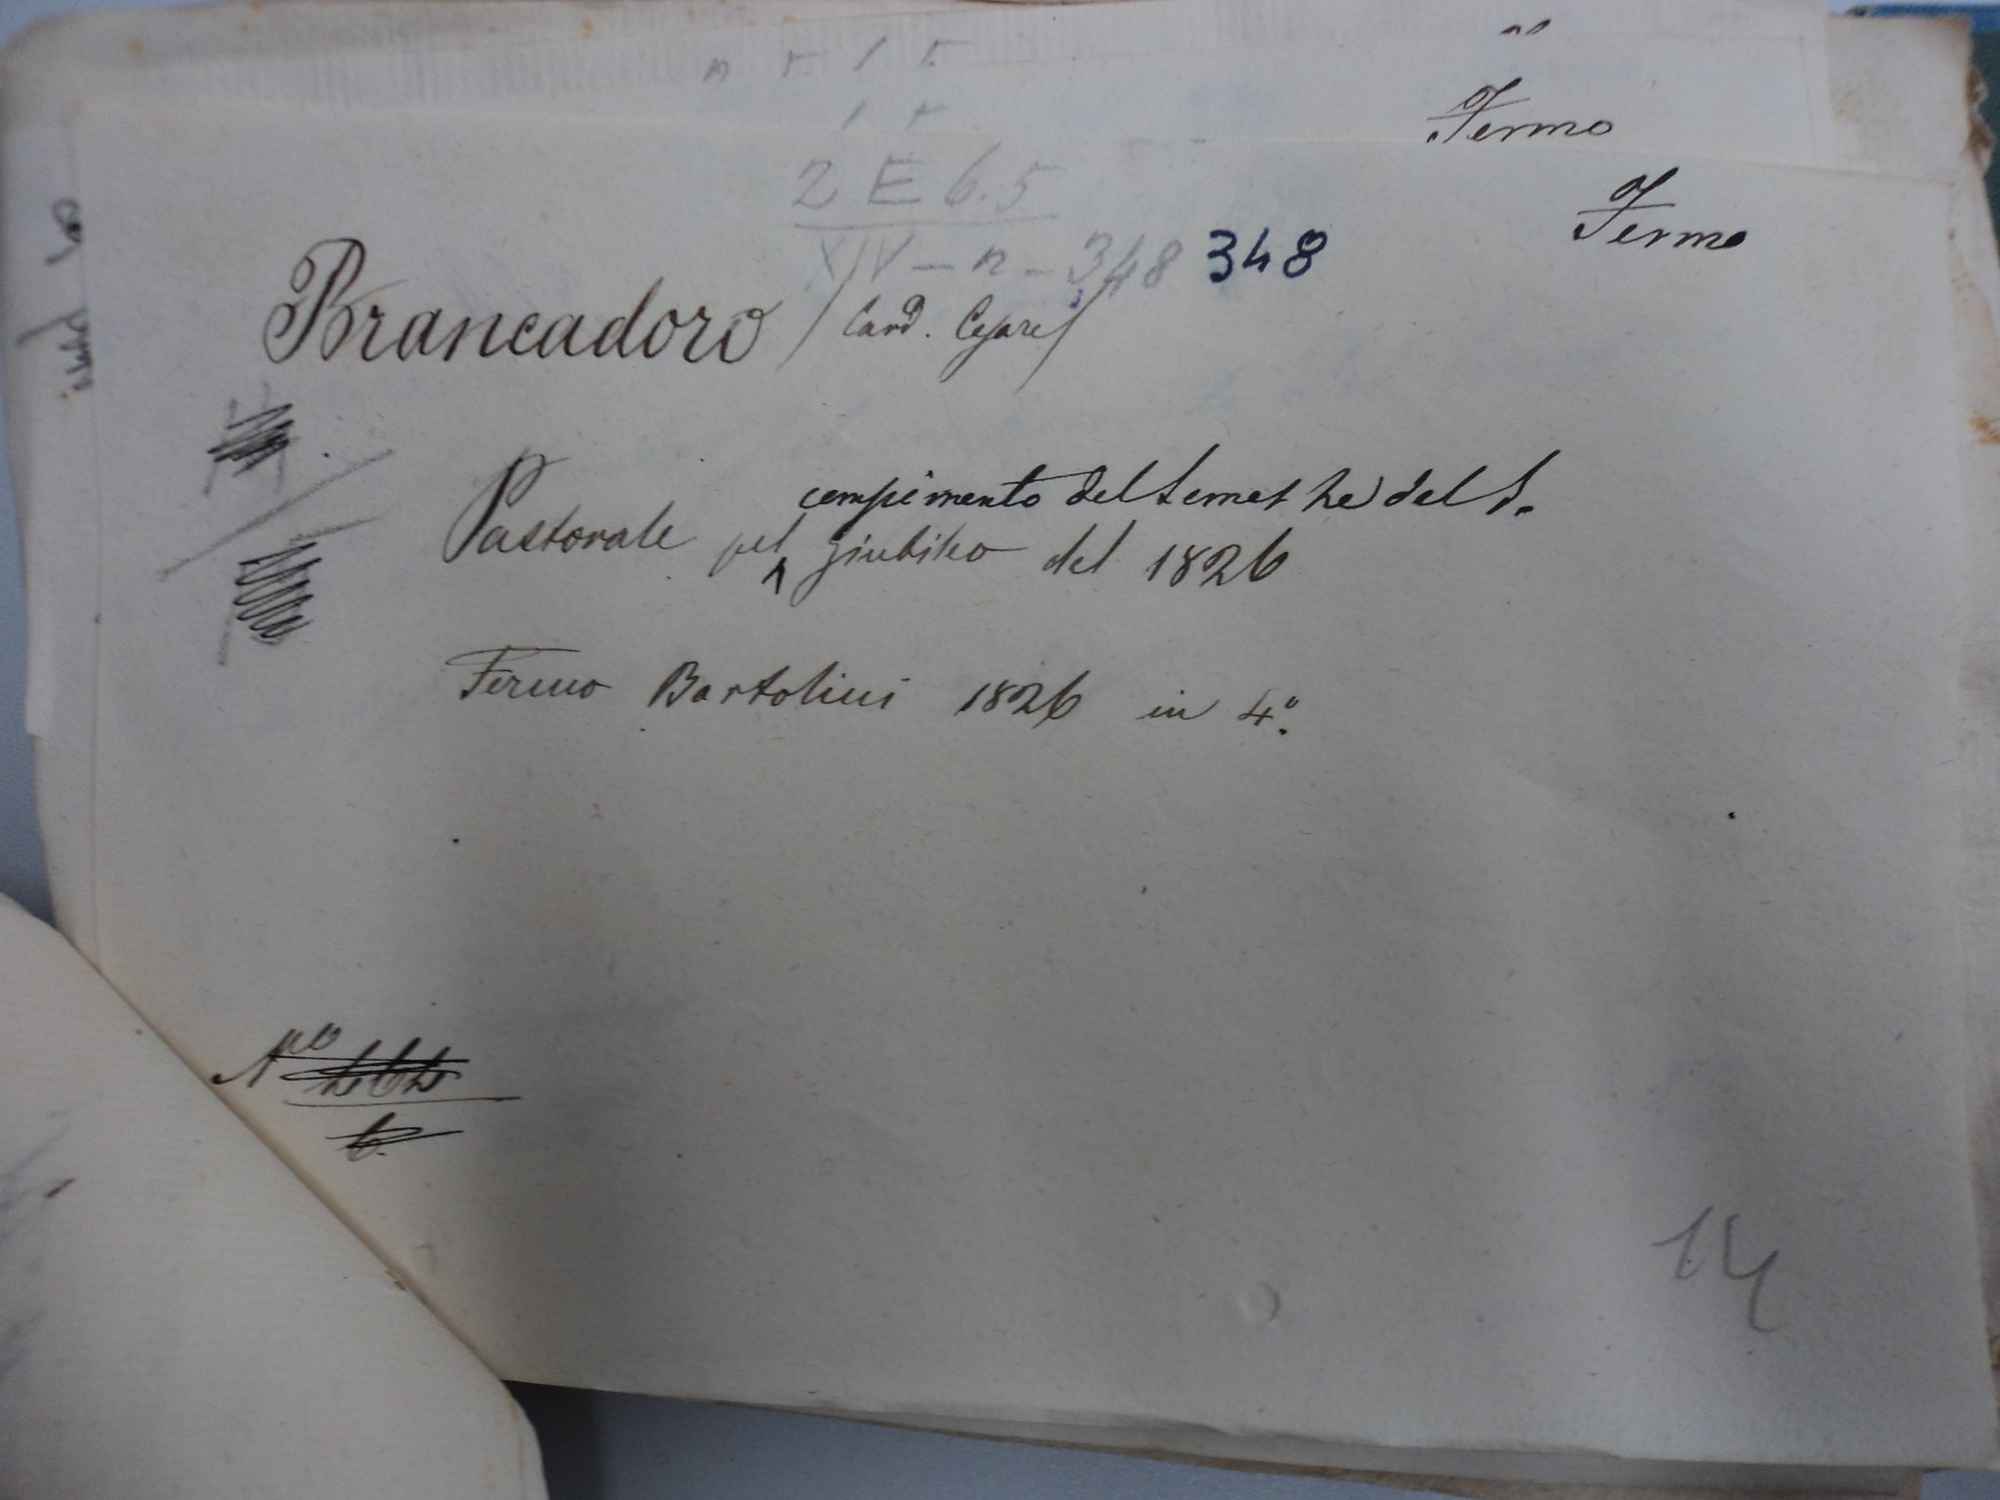 Fermo
Fermo
2 E 6.5
XIV - n - 348 348
Brancadoro / Card. Cesare /
compimento del Semestre del S.
Pastorale pel giubileo del 1826
Fermo Bartolini 1826 in 4°.
Nro
6.
14